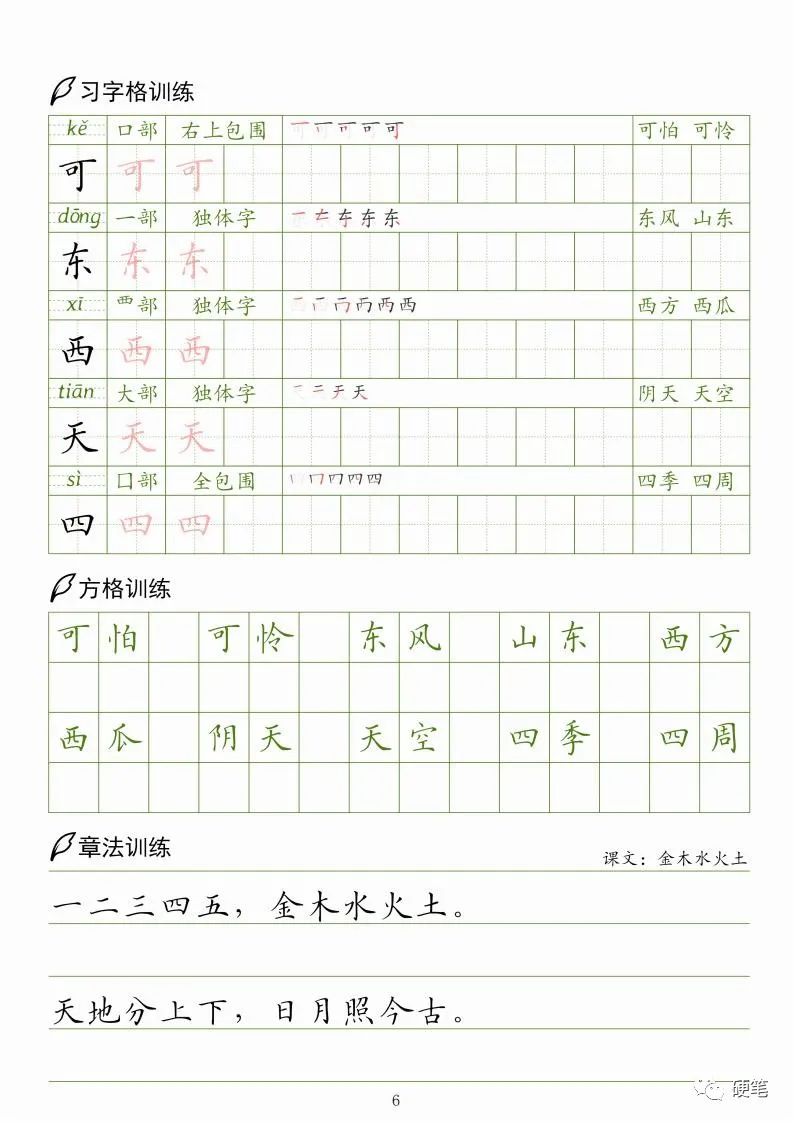 习字格训练
kě 口部 右上包围 可怕 可怜
可 可 可
dōng 一部 独体字 东风 山东
东 东 东
xī 覀部 独体字 西方 西瓜
西 西 西
tiān 大部 独体字 阴天 天空
天 天 天
sì 囗部 全包围 四季 四周
四 四 四
方格训练
可怕 可怜 东风 山东 西方
西瓜 阴天 天空 四季 四周
章法训练
课文：金木水火土
一二三四五，金木水火土。
天地分上下，日月照今古。
6
硬笔